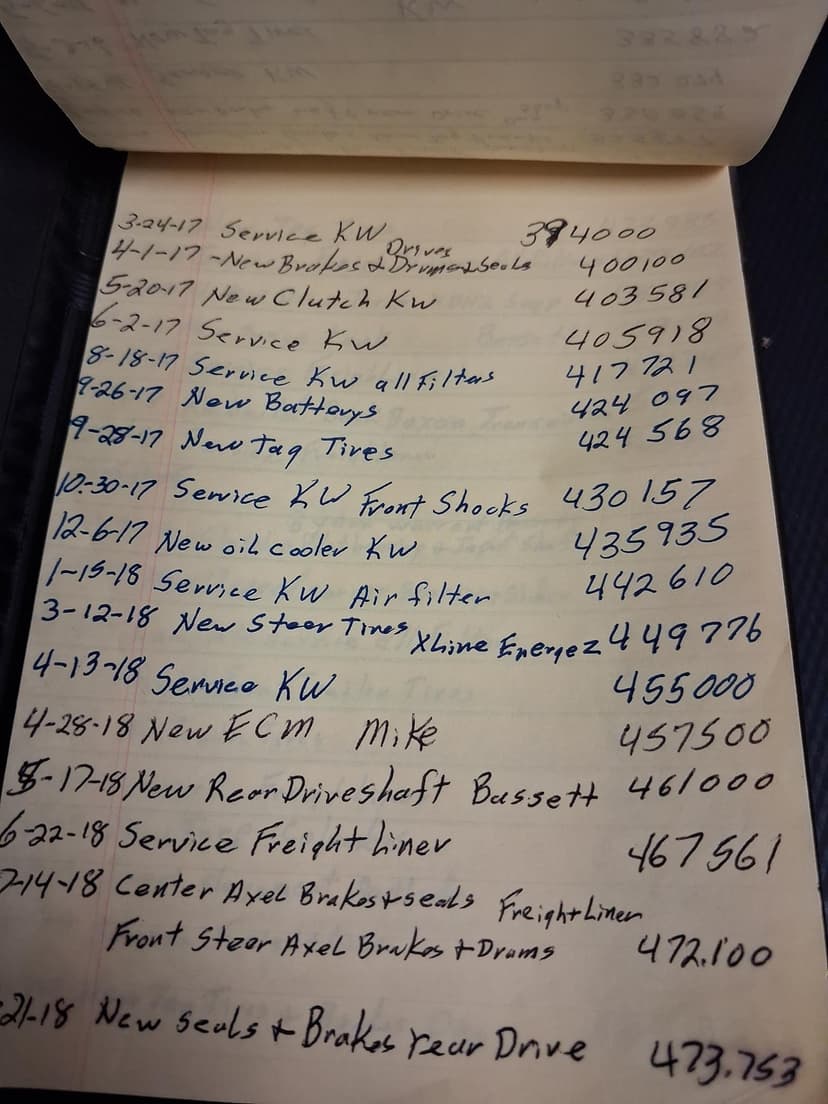 KW
3-24-17 Service KW 394000
4-1-17 -New Brakes & Drums & Seals Drives 400100
5-20-17 New Clutch KW 403581
6-2-17 Service KW 405918
8-18-17 Service KW all Filters 417721
9-26-17 New Batterys 424 097
9-28-17 New Tag Tires 424 568
10-30-17 Service KW Front Shocks 430157
12-6-17 New oil cooler KW 435935
1-15-18 Service KW Air filter 442610
3-12-18 New Steer Tires XLine Energez 449776
4-13-18 Service KW 455000
4-28-18 New ECM Mike 457500
5-17-18 New Rear Driveshaft Bassett 461000
6-22-18 Service Freightliner 467561
7-14-18 Center Axel Brakes & seals Freightliner
Front Steer Axel Brakes & Drums 472.100
21-18 New seals & Brakes rear Drive 473.753